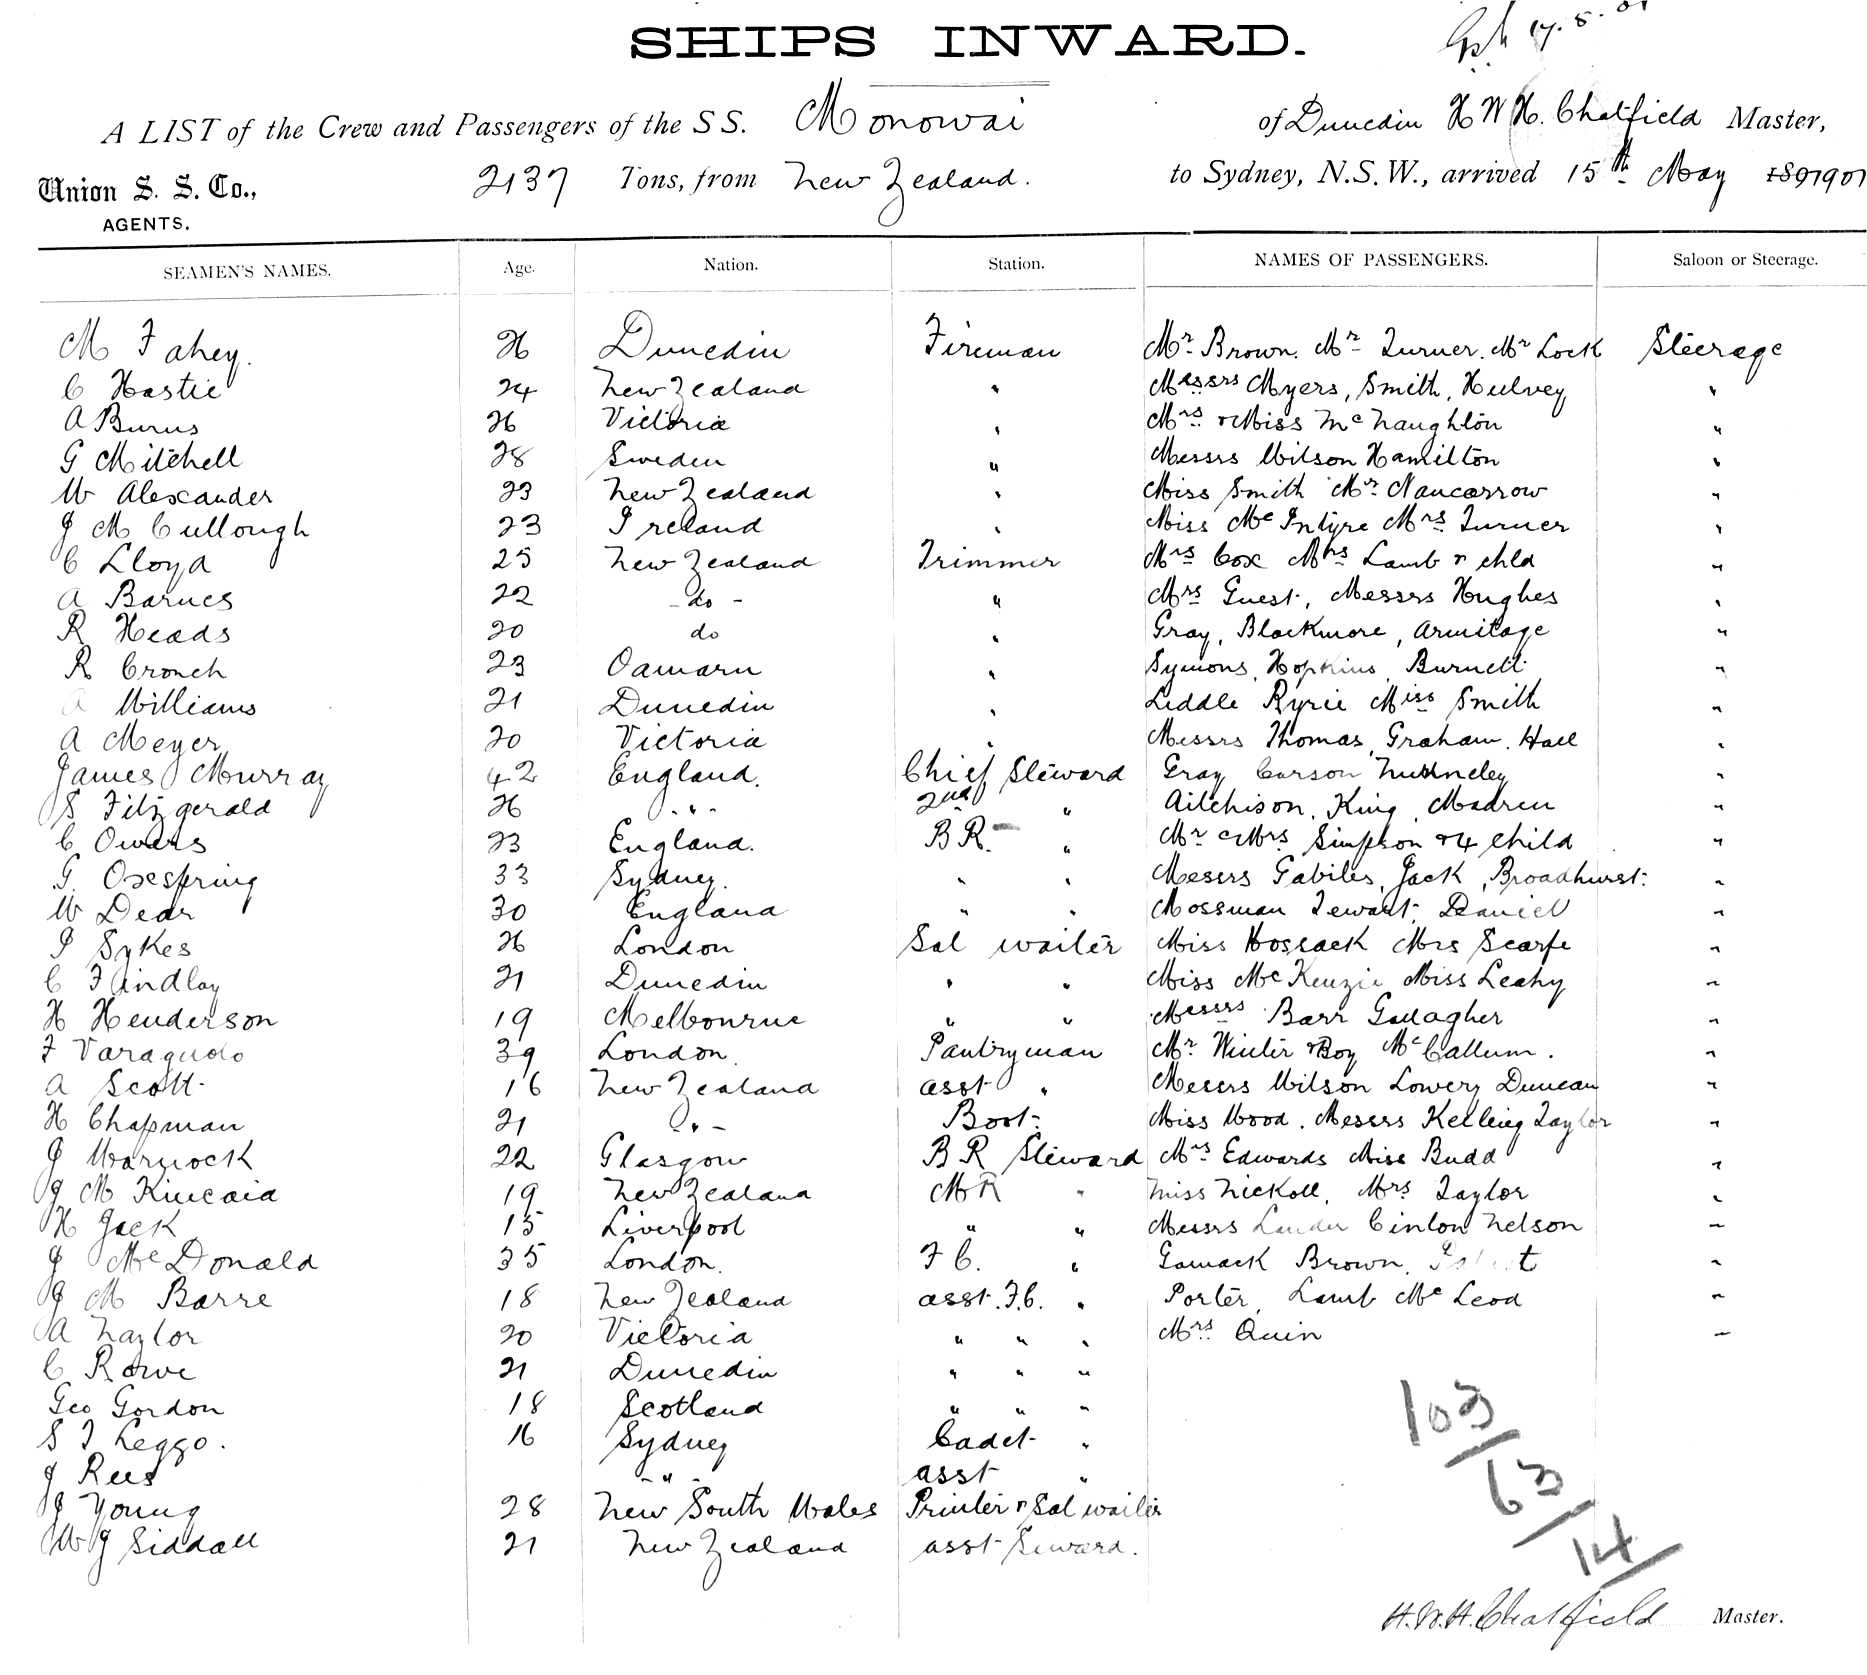 SHIPS INWARD.
17. 5. 01
A LIST of the Crew and Passengers of the S S. Monowai of Dunedin H W H. Chatfield Master,
Union S. S. Co., AGENTS. 2137 Tons, from New Zealand. to Sydney, N.S.W., arrived 15th May 1897 1901
SEAMEN'S NAMES. Age. Nation. Station. NAMES OF PASSENGERS. Saloon or Steerage.
M Fahey. 26 Dunedin Fireman Mr Brown. Mr Turner. Mr Lock Steerage
C Hastie 24 New Zealand " Messrs Myers, Smith, Hulvey "
A Burns 26 Victoria " Mrs & Miss McNaughton "
G Mitchell 28 Sweden " Messrs Wilson Hamilton "
W Alexander 23 New Zealand " Miss Smith Mr Nancarrow "
J M Cullough 23 Ireland " Miss McIntyre Mrs Turner "
C Lloyd 25 New Zealand Trimmer Mrs Cox Mrs Lamb & chld "
A Barnes 22 - do - " Mrs Guest, Messrs Hughes "
R Heads 20 do " Gray, Blackmore, Armitage "
R Crouch 23 Oamaru " Symons, Hopkins, Burnett "
A Williams 21 Dunedin " Liddle Ryrie Miss Smith "
A Meyer 20 Victoria " Messrs Thomas, Graham. Hall "
James Murray 42 England. Chief Steward Gray Carson "
S Fitzgerald 26 - " - 2nd " Aitchison, King, Madren "
C Owens 23 England. B R. " Mr & Mrs Simpson & 4 Child "
G. Oxespring 33 Sydney. " " Messrs Gabites, Jack, Broadhurst. "
W Dear 30 England " " Mossman Tewart, Daniel "
J Sykes 26 London Sal waiter Miss Hossack Mrs Scarfe "
C Findlay 21 Dunedin " " Miss McKenzie Miss Leahy "
H Henderson 19 Melbourne " " Messrs Barr Gallagher "
F Varagudo 39 London. Pantryman Mr Winter & Boy McCallum. "
A Scott 16 New Zealand asst " Messrs Wilson Lowery Duncan "
H Chapman 21 - " - Boot. Miss Wood. Messrs Kelling Taylor "
J Warnock 22 Glasgow B R Steward Mrs Edwards Miss Budd "
J M Kincaid 19 New Zealand M R " Miss Nickoll, Mrs Taylor "
H Jack 15 Liverpool " " Messrs Lauder Cinlon Nelson "
J McDonald 35 London. F C. " Gamack Brown, "
J M Barre 18 New Zealand asst. F.C. " Porter, Lamb McLeod "
A Naylor 20 Victoria " " " Mrs Quin "
C Rowe 21 Dunedin " " "
Geo Gordon 18 Scotland " " "
S T Leggo. 16 Sydney Cadet "
J Rees - " - asst "
J Young 28 New South Wales Printer & Sal waiter
W J Siddall 21 New Zealand asst Seward.
103/
63/
14/
H.W.H. Chatfield Master.